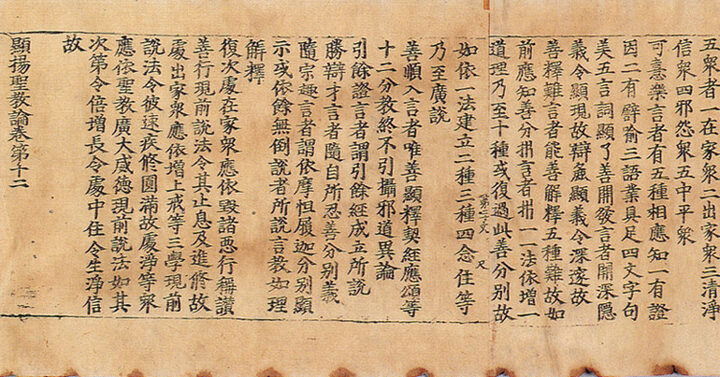 五衆者一在家衆二出家衆三清淨
信衆四邪怨衆五中平衆
可意樂言者有五種相應知一有證
因二有譬喻三語業具足四文字句
美五言詞顯了善開發言者開深隱
義令顯現故辯麁顯義令深邃故
善釋難言者能善解釋五種難故如
前應知善分析言者析一一法依增一
道理乃至十種或復過此善分別故
如依一法建立二種三種四念住等
乃至廣說
善順入言者唯善顯釋契經應頌等
十二分教終不引攝邪道異論
引餘證言者謂引餘經成立所說
勝辯才言者隨自所忍善分別義
隨宗趣言者謂依摩怛履迦分別顯
示或依餘無倒說者所說言教如理
解釋
復次處在家衆應依毀諸惡行稱讚
善行現前說法令其止息及進修故
處出家衆應依增上戒等三學現前
說法令彼速疾修圓滿故處淨等衆
應依聖教廣大威德現前說法如其
次第令倍增長令處中住令生淨信
故
顯揚聖教論卷第十二